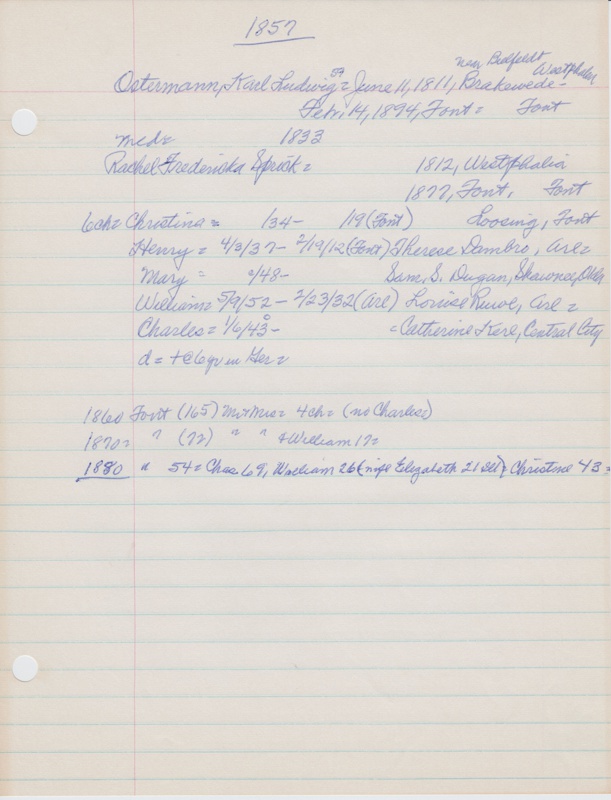 1857
near Bielfeldt
Westphalia
Ostermann, Karl Ludwig 57 = June 11, 1811, Brakewede -
Feb. 14, 1894, Font = Font
med = 1833
Rachel Fredericka Sprick = 1812, Westphalia
1877, Font, Font
6ch = Christina = /34 - /19 (Font) Loosing, Font
Henry = 4/3/37 - 2/19/12 (Font) Therese Dambro, Arl =
Mary = /48 - Sam, S. Dugan, Shawnee, Okla
William = 5/9/52 - 2/23/32 (Arl) Louise Ruwe, Arl =
Charles = 1/6/43 - = Catherine Kerl, Central City
d = + @ 6 yr in Ger =
1860 Font (165) Mr + Mrs = 4ch = (no Charles)
1870 = " (72) " " + William 17 =
1880 " 54 = Chas 69, William 26 (wife Elizabeth 21 Ill) + Christine 43 =